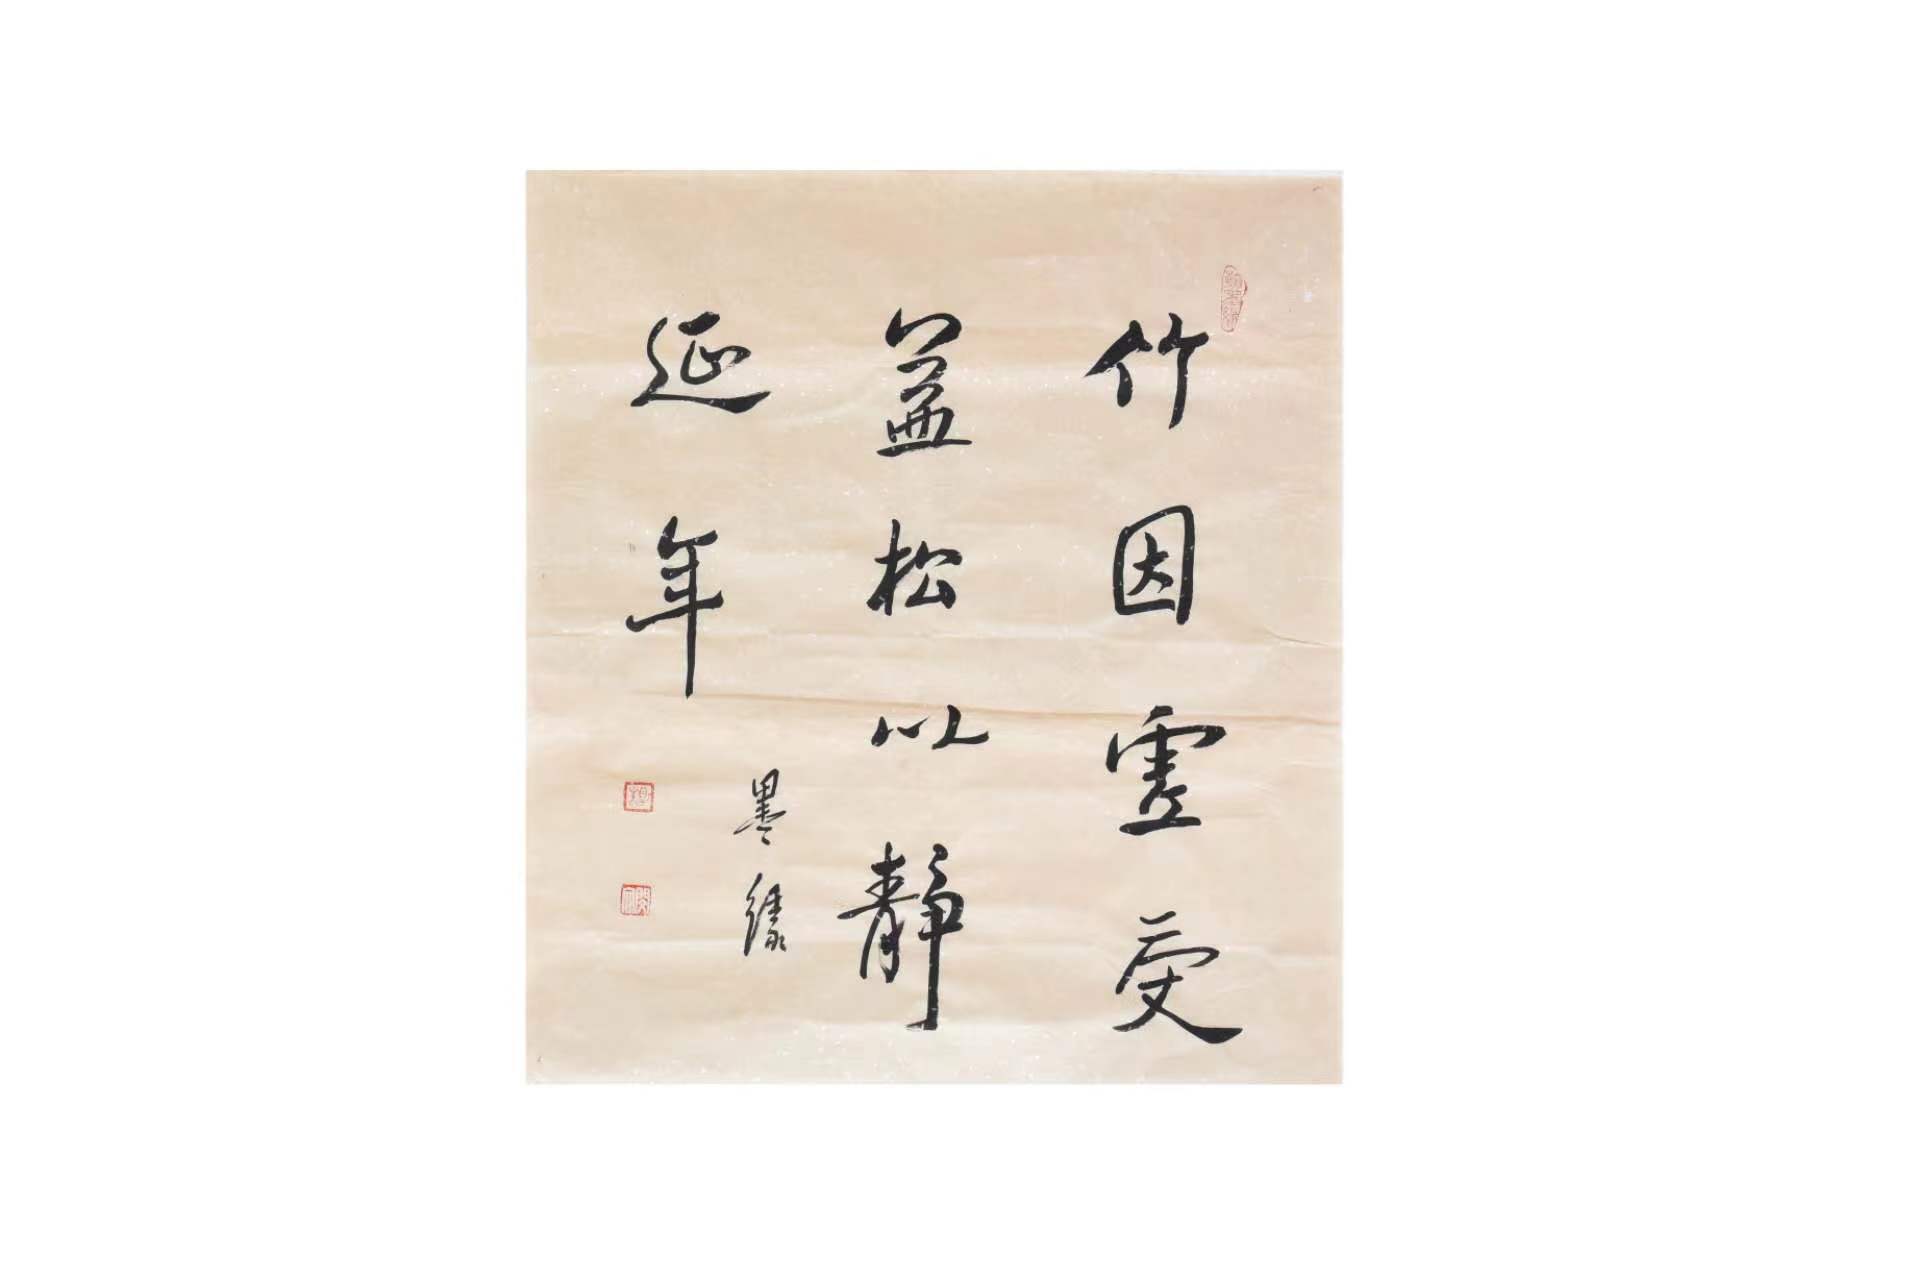 竹因虚受
益松以静
延年
墨缘